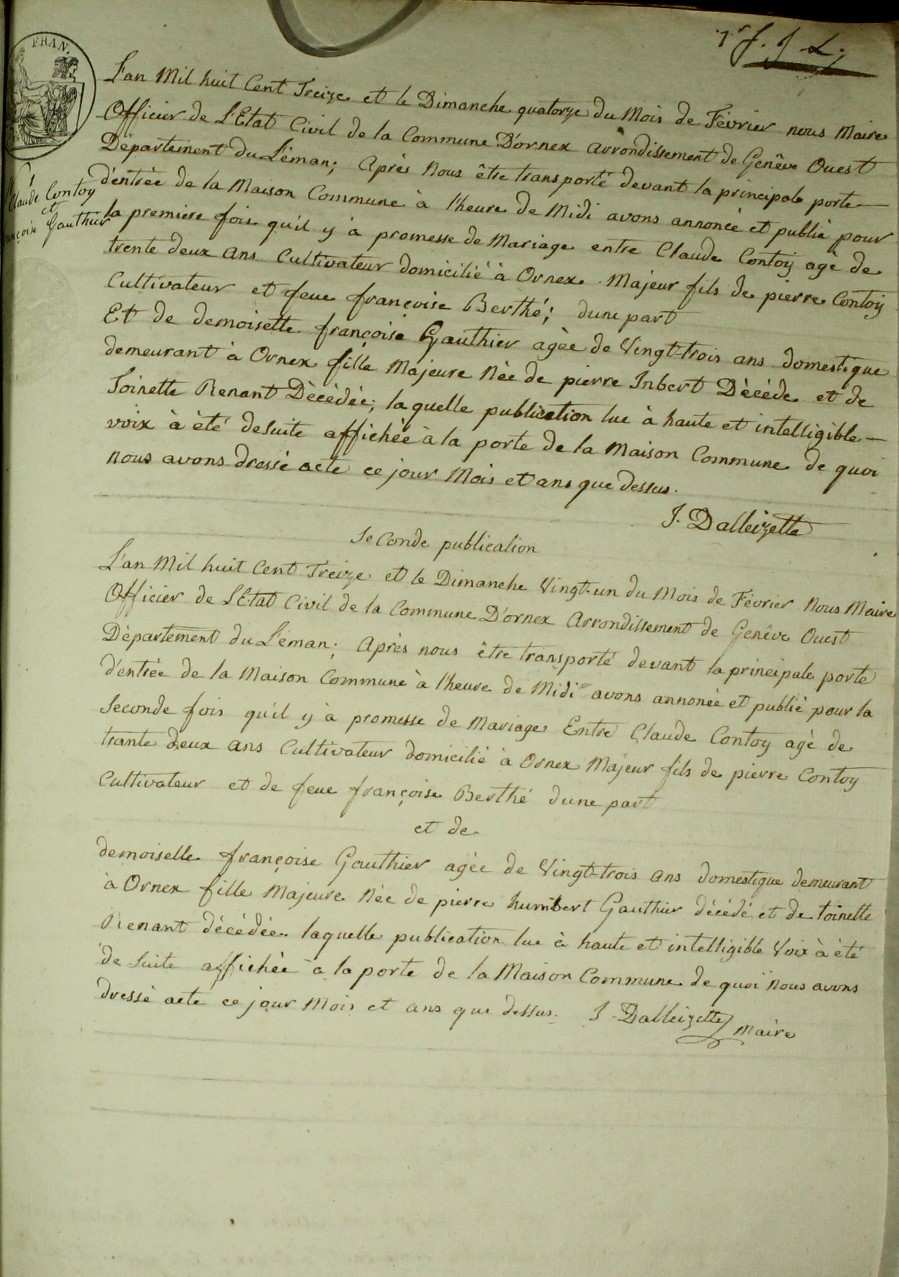 1er f. J. L.
FRAN.
Claude Contoy
et
françoise Gauthier
L'an Mil huit Cent Treize et le Dimanche quatorze du Mois de Février nous Maire
Officier de L'Etat Civil de la Commune D'ornex Arrondissement de Genêve Ouest
Departement du Léman; Après Nous être transporté devant la principale porte
d'entrée de la Maison Commune à l'heure de Midi avons annoncé et publié pour
la premiere fois qu'il y à promesse de Mariage entre Claude Contoy agé de
trente deux ans Cultivateur domicilié à Ornex Majeur fils de pierre Contoy
Cultivateur et feue françoise Berthé; dune part
Et de demoiselle françoise Gauthier agée de Vingt-trois ans domestique
demeurant à Ornex fille Majeure Née de pierre Inbert Décédé et de
Toinette Pienant Dècédée; laquelle publication lue à haute et intelligible
voix à été desuite affichée à la porte de la Maison Commune de quoi
nous avons dressé acte ce jour Mois et ans que dessus.
J. Dalleizette
Seconde publication
L'an Mil huit Cent Treize et le Dimanche Vingt-un du Mois de Février Nous Maire
Officier de L'Etat Civil de la Commune D'ornex Arrondissement de Genêve Ouest
Département du Léman; Après nous être transporté devant la principale porte
d'entrée de la Maison Commune à l'heure de Midi avons annonée et publié pour la
Seconde fois qu'il y à promesse de Mariage Entre Claude Contoy agé de
trante deux ans Cultivateur domicilié à Ornex Majeur fils de pierre Contoy
Cultivateur et de feue françoise Berthé dune part
et de
demoiselle françoise Gauthier agée de Vingt-trois ans domestique demeurant
à Ornex fille Majeure Née de pierre humbert Gauthier décédé et de toinette
Pienant décédée laquelle publication lue à haute et intelligible Voix à été
de suite affichée à la porte de la Maison Commune de quoi Nous avons
dressé acte ce jour Mois et ans que dessus. J. Dalleizette Maire